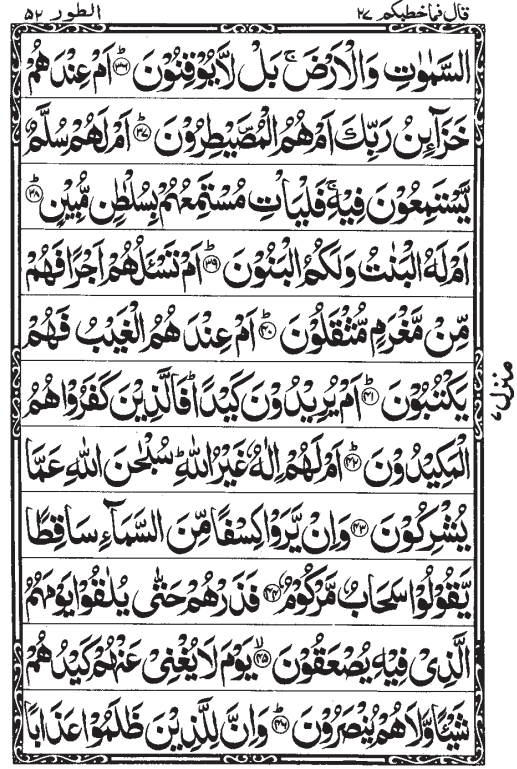 قال فما خطبكم ٢٧
الطور ٥٢
السَّمٰوٰتِ وَالْاَرْضَ ۚ بَلْ لَّا يُوْقِنُوْنَ ؕ﴿۳۶﴾ اَمْ عِنْدَهُمْ
خَزَآئِنُ رَبِّكَ اَمْ هُمُ الْمُصَۜيْطِرُوْنَ ؕ﴿۳۷﴾ اَمْ لَهُمْ سُلَّمٌ
يَّسْتَمِعُوْنَ فِيْهِ ۚ فَلْيَاْتِ مُسْتَمِعُهُمْ بِسُلْطٰنٍ مُّبِيْنٍ ؕ﴿۳۸﴾
اَمْ لَهُ الْبَنٰتُ وَلَكُمُ الْبَنُوْنَ ؕ﴿۳۹﴾ اَمْ تَسْـَٔلُهُمْ اَجْرًا فَهُمْ
مِّنْ مَّغْرَمٍ مُّثْقَلُوْنَ ؕ﴿۴۰﴾ اَمْ عِنْدَهُمُ الْغَيْبُ فَهُمْ
يَكْتُبُوْنَ ؕ﴿۴۱﴾ اَمْ يُرِيْدُوْنَ كَيْدًا ؕ فَالَّذِيْنَ كَفَرُوْا هُمُ
الْمَكِيْدُوْنَ ؕ﴿۴۲﴾ اَمْ لَهُمْ اِلٰهٌ غَيْرُ اللّٰهِ ؕ سُبْحٰنَ اللّٰهِ عَمَّا
يُشْرِكُوْنَ ﴿۴۳﴾ وَاِنْ يَّرَوْا كِسْفًا مِّنَ السَّمَآءِ سَاقِطًا
يَّقُوْلُوْا سَحَابٌ مَّرْكُوْمٌ ﴿۴۴﴾ فَذَرْهُمْ حَتّٰى يُلٰقُوْا يَوْمَهُمُ
الَّذِيْ فِيْهِ يُصْعَقُوْنَ ۙ﴿۴۵﴾ يَوْمَ لَا يُغْنِيْ عَنْهُمْ كَيْدُهُمْ
شَيْـًٔا وَّلَا هُمْ يُنْصَرُوْنَ ؕ﴿۴۶﴾ وَاِنَّ لِلَّذِيْنَ ظَلَمُوْا عَذَابًا
منزل ٧